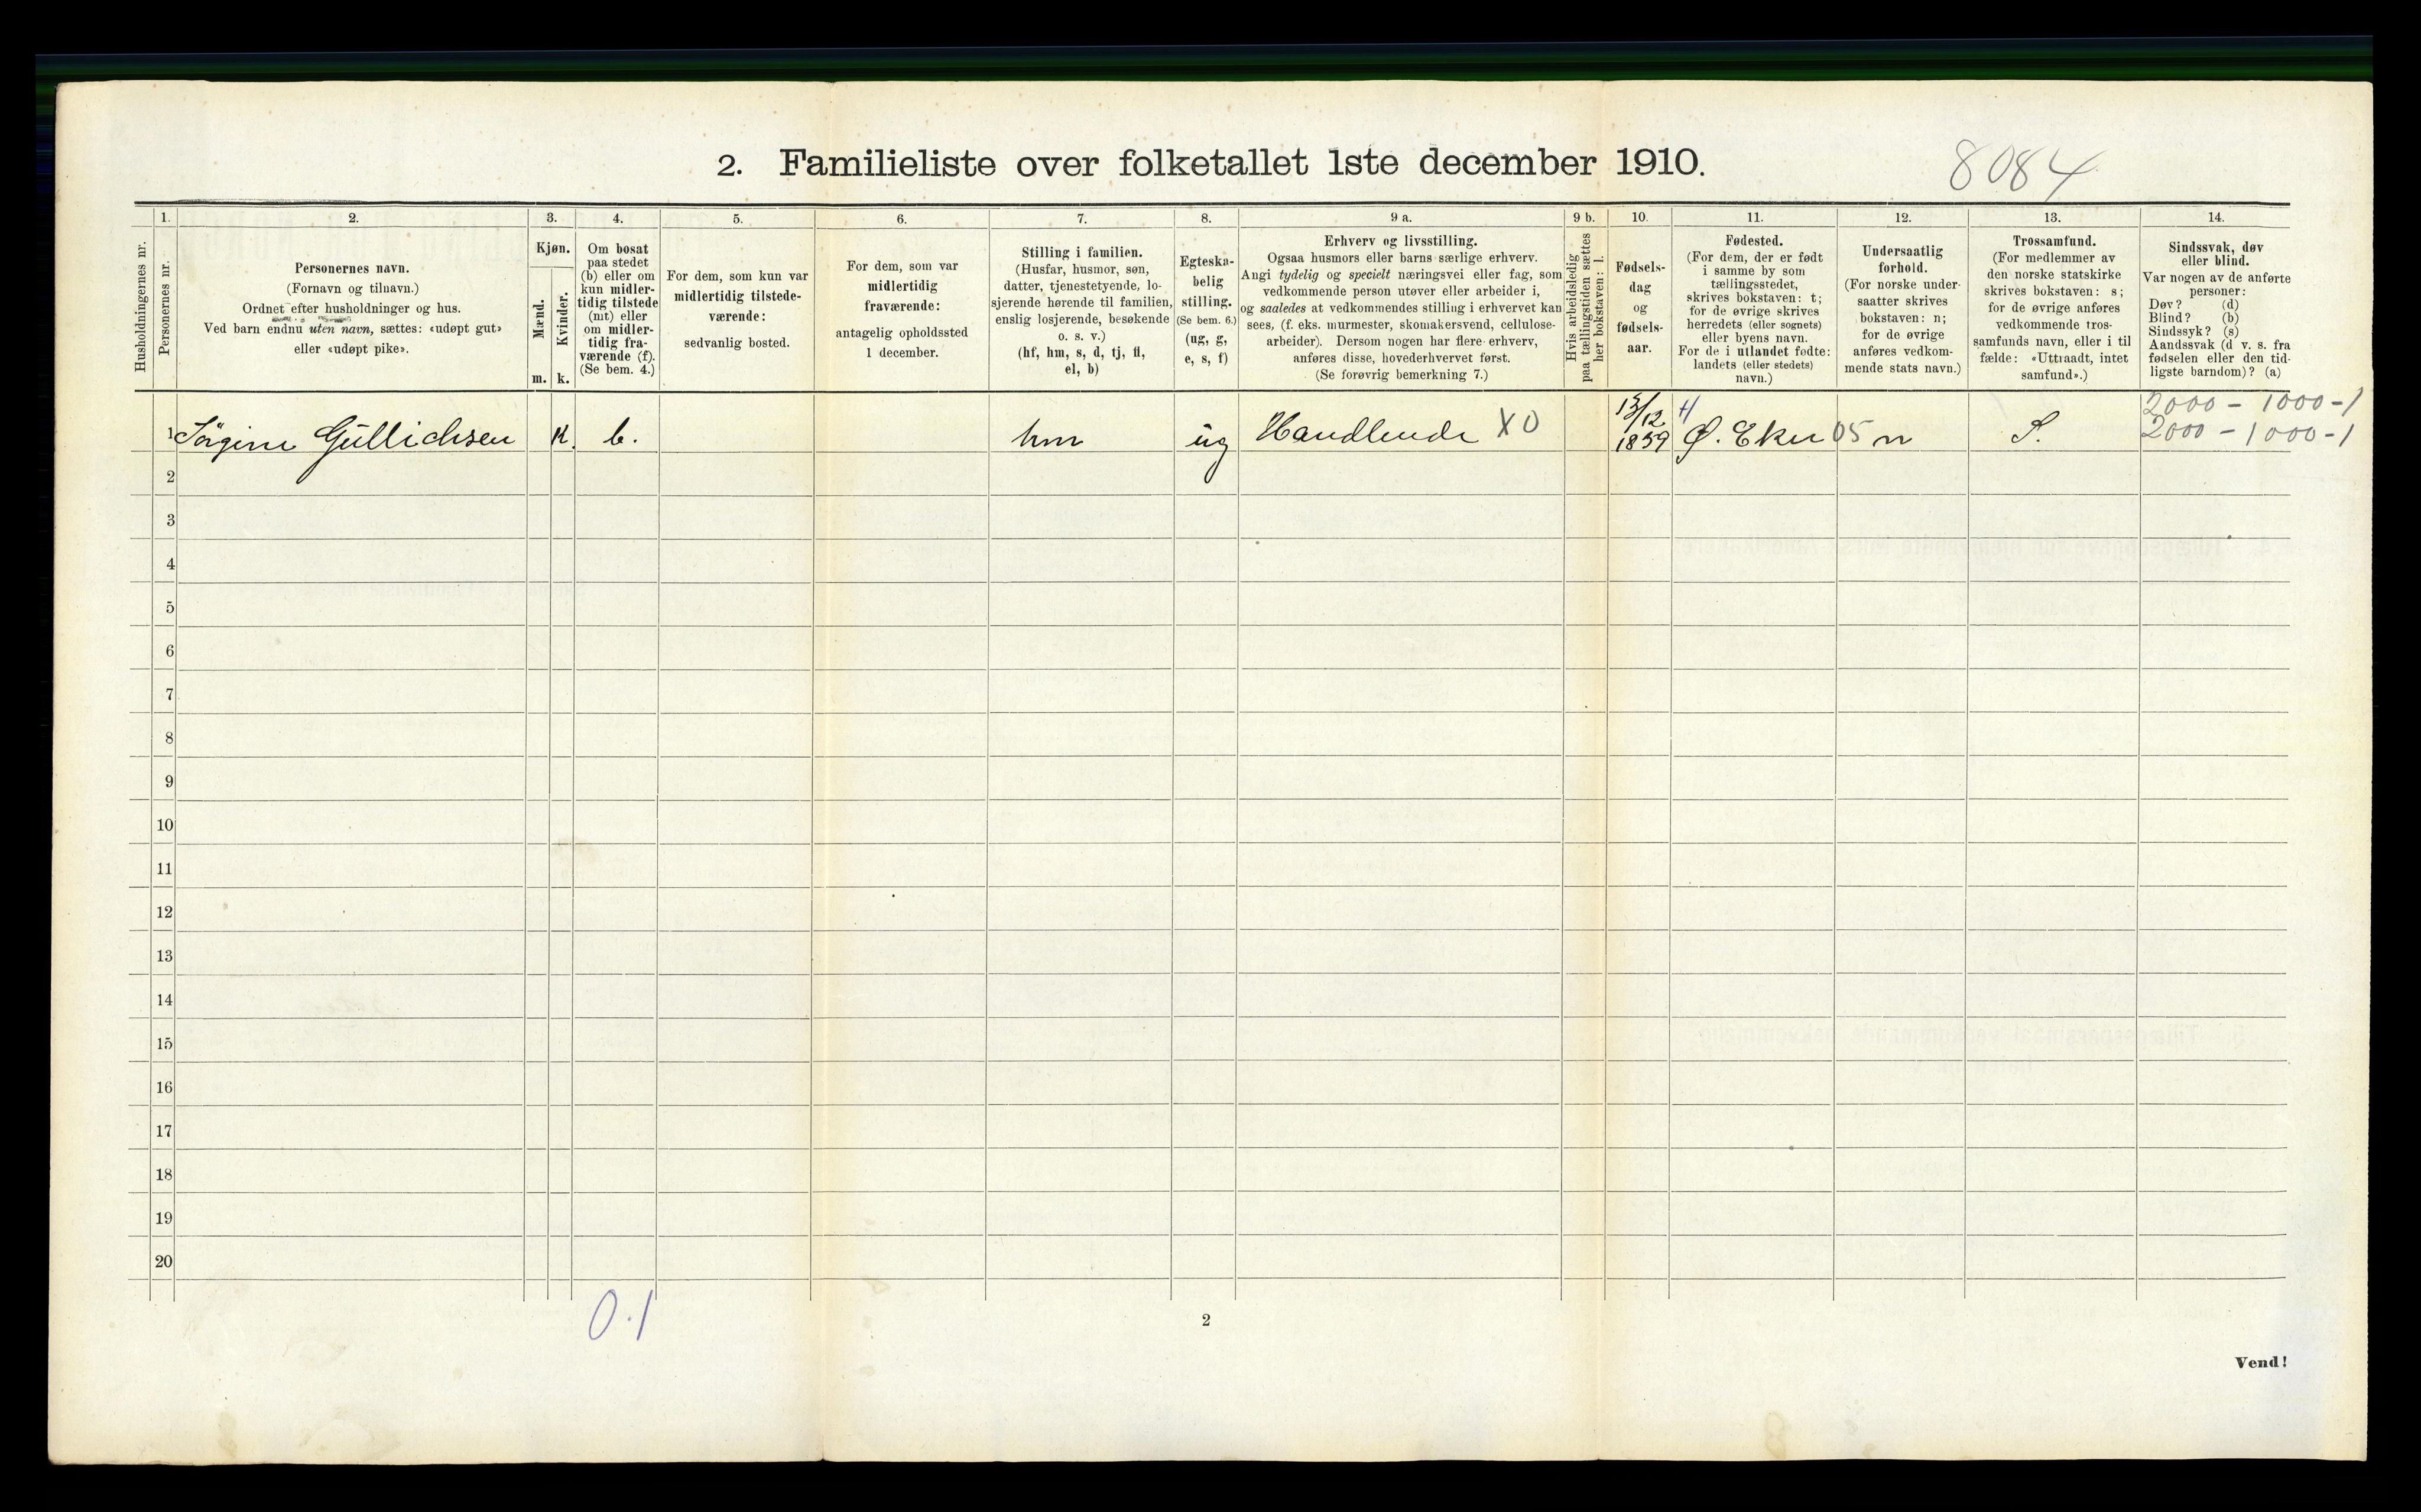 2. Familieliste over folketallet 1ste december 1910.
8084
Husholdningernes nr.
1.
Personernes nr.
2.
Personernes navn.
(Fornavn og tilnavn.)
Ordnet efter husholdninger og hus.
Ved barn endnu uten navn, sættes: «udøpt gut»
eller «udøpt pike».
3.
Kjøn.
Mænd.
m.
Kvinder.
k.
4.
Om bosat
paa stedet
(b) eller om
kun midler-
tidig tilstede
(mt) eller
om midler-
tidig fra-
værende (f).
(Se bem. 4.)
5.
For dem, som kun var
midlertidig tilstede-
værende:
sedvanlig bosted.
6.
For dem, som var
midlertidig
fraværende:
antagelig opholdssted
1 december.
7.
Stilling i familien.
(Husfar, husmor, søn,
datter, tjenestetyende, lo-
sjerende hørende til familien,
enslig losjerende, besøkende
o. s. v.)
(hf, hm, s, d, tj, fl,
el, b)
8.
Egteska-
belig
stilling.
(Se bem. 6.)
(ug, g,
e, s, f)
9 a.
Erhverv og livsstilling.
Ogsaa husmors eller barns særlige erhverv.
Angi tydelig og specielt næringsvei eller fag, som
vedkommende person utøver eller arbeider i,
og saaledes at vedkommendes stilling i erhvervet kan
sees, (f. eks. murmester, skomakersvend, cellulose-
arbeider). Dersom nogen har flere erhverv,
anføres disse, hovederhvervet først.
(Se forøvrig bemerkning 7.)
9 b.
Hvis arbeidsledig
paa tællingstiden sættes
her bokstaven: l.
10.
Fødsels-
dag
og
fødsels-
aar.
11.
Fødested.
(For dem, der er født
i samme by som
tællingsstedet,
skrives bokstaven: t;
for de øvrige skrives
herredets (eller sognets)
eller byens navn.
For de i utlandet fødte:
landets (eller stedets)
navn.)
12.
Undersaatlig
forhold.
(For norske under-
saatter skrives
bokstaven: n;
for de øvrige
anføres vedkom-
mende stats navn.)
13.
Trossamfund.
(For medlemmer av
den norske statskirke
skrives bokstaven: s;
for de øvrige anføres
vedkommende tros-
samfunds navn, eller i til
fælde: «Uttraadt, intet
samfund».)
14.
Sindssvak, døv
eller blind.
Var nogen av de anførte
personer:
Døv? (d)
Blind? (b)
Sindssyk? (s)
Aandssvak (d v. s. fra
fødselen eller den tid-
ligste barndom)? (a)
1 Sörgine Gullichsen K. b. hm ug Handlende X0 13/12 1859 Ø. Eker 05 n S.
2000 - 1000 - 1
2000 - 1000 - 1
2
3
4
5
6
7
8
9
10
11
12
13
14
15
16
17
18
19
20
0.1
2
Vend!